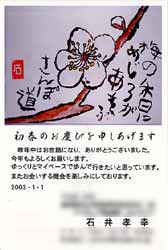 梅の木に
めじろが
あそぶ
さんぽ
道
石
初春のお慶びを申しあげます
昨年中はお世話になり、ありがとうございました。
今年もよろしくお願いします。
ゆっくりとマイペースで歩んで行きたいと思っています。
またお会いする機会を楽しみにしております。
2003・1・1
石井孝幸